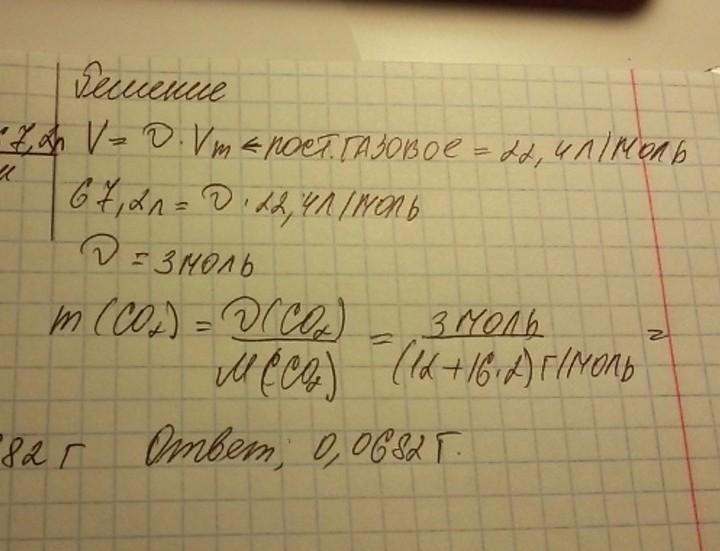 Решение
67,2л V = ν · Vm ← пост. газовое = 22,4 л/моль
67,2л = ν · 22,4 л/моль
ν = 3 моль
m (CO2) = ν(CO2) / M(CO2) = 3 моль / (12 + 16·2) г/моль =
682 г Ответ; 0,0682 г.